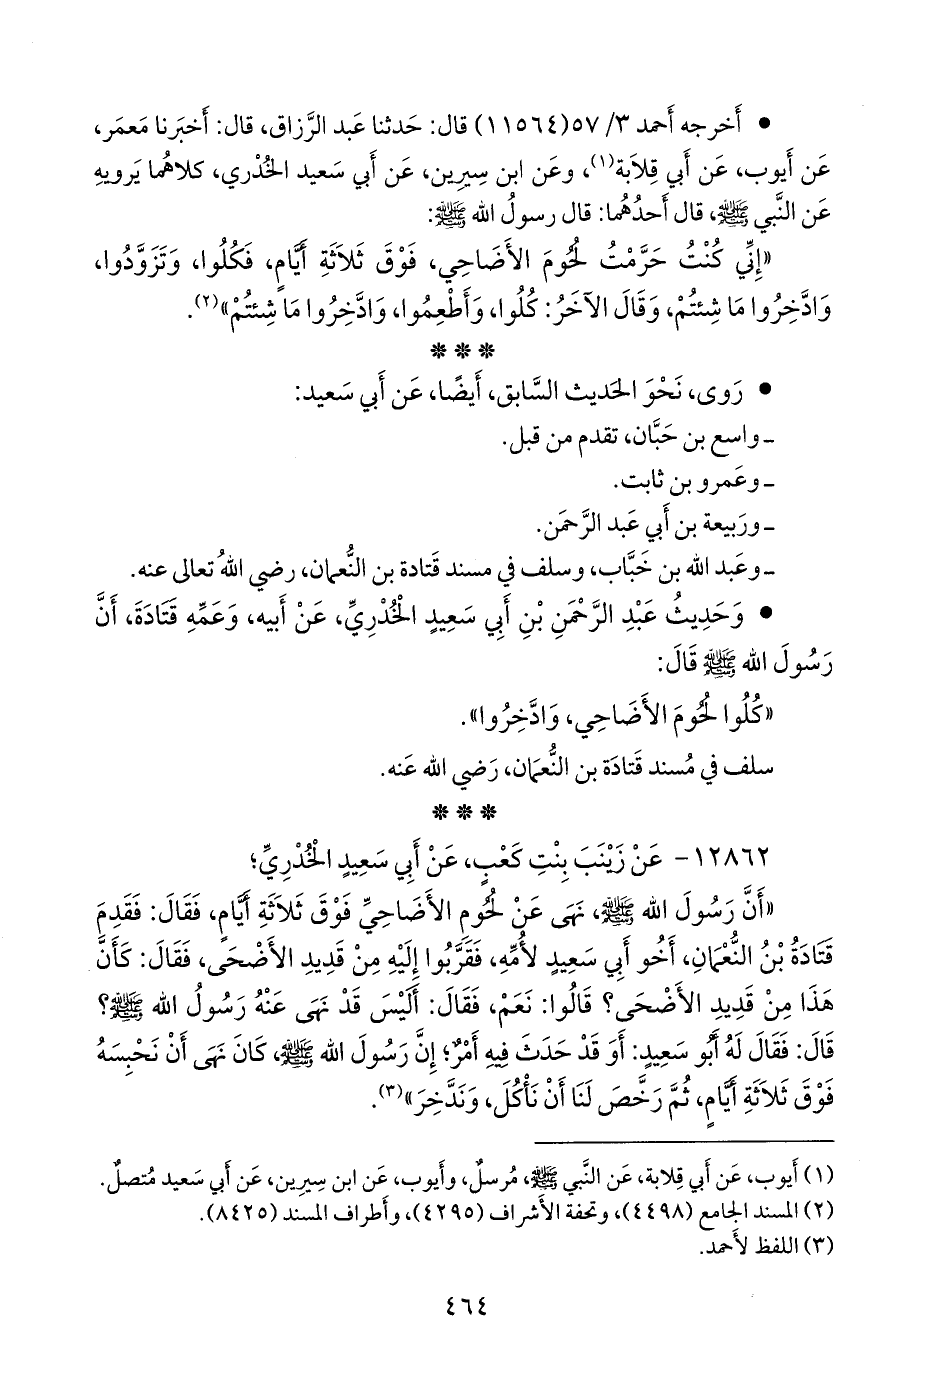 • أَخرجه أَحمد ٣/ ٥٧(١١٥٦٤) قال: حَدثنا عَبد الرَّزاق، قال: أَخبَرنا مَعمَر،
عَن أَيوب، عَن أَبي قِلاَبة(١)، وعَن ابن سِيرين، عَن أَبي سَعيد الخُدْري، كلاهُما يَرويهِ
عَن النَّبي ﷺ، قال أَحدُهُما: قال رسولُ الله ﷺ:
«إِنِّي كُنْتُ حَرَّمْتُ لُحُومَ الأَضَاحِي، فَوْقَ ثَلاَثَةِ أَيَّامٍ، فَكُلُوا، وَتَزَوَّدُوا،
وَادَّخِرُوا مَا شِئتُمْ، وَقَالَ الآخَرُ: كُلُوا، وَأَطْعِمُوا، وَادَّخِرُوا مَا شِئتُمْ»(٢).
* * *
• رَوى، نَحْوَ الحَديث السَّابق، أَيضًا، عَن أَبي سَعيد:
ـ واسع بن حَبَّان، تقدم من قبل.
ـ وعَمرو بن ثابت.
ـ ورَبيعة بن أَبي عَبد الرَّحمَن.
ـ وعَبد الله بن خَبَّاب، وسلف في مسند قَتادة بن النُّعمان، رضي اللهُ تعالى عنه.
• وَحَدِيثُ عَبْدِ الرَّحْمَنِ بْنِ أَبِي سَعِيدٍ الْخُدْرِيِّ، عَنْ أَبيه، وَعَمِّهِ قَتَادَةَ، أَنَّ
رَسُولَ الله ﷺ قَالَ:
«كُلُوا لُحُومَ الأَضَاحِي، وَادَّخِرُوا».
سلف في مُسند قَتادَة بن النُّعمَان، رَضي الله عَنه.
* * *
١٢٨٦٢- عَنْ زَيْنَبَ بِنْتِ كَعْبٍ، عَنْ أَبِي سَعِيدٍ الْخُدْرِيِّ؛
«أَنَّ رَسُولَ الله ﷺ، نَهَى عَنْ لُحُومِ الأَضَاحِيِّ فَوْقَ ثَلاَثَةِ أَيَّامٍ، فَقَالَ: فَقَدِمَ
قَتَادَةُ بْنُ النُّعْمَانِ، أَخُو أَبِي سَعِيدٍ لأُمِّهِ، فَقَرَّبُوا إِلَيْهِ مِنْ قَدِيدِ الأَضْحَى، فَقَالَ: كَأَنَّ
هَذَا مِنْ قَدِيدِ الأَضْحَى؟ قَالُوا: نَعَمْ، فَقَالَ: أَلَيْسَ قَدْ نَهَى عَنْهُ رَسُولُ الله ﷺ؟
قَالَ: فَقَالَ لَهُ أَبُو سَعِيدٍ: أَوَ قَدْ حَدَثَ فِيهِ أَمْرٌ؛ إِنَّ رَسُولَ الله ﷺ، كَانَ نَهَى أَنْ نَحْبِسَهُ
فَوْقَ ثَلاَثَةِ أَيَّامٍ، ثُمَّ رَخَّصَ لَنَا أَنْ نَأْكُلَ، وَنَدَّخِرَ»(٣).
(١) أَيوب، عَن أَبي قِلابة، عَن النَّبي ﷺ، مُرسلٌ، وأَيوب، عَن ابن سِيرين، عَن أَبي سَعيد مُتصلٌ.
(٢) المسند الجامع (٤٤٩٨)، وتحفة الأَشراف (٤٢٩٥)، وأَطراف المسند (٨٤٢٥).
(٣) اللفظ لأَحمد.
٤٦٤